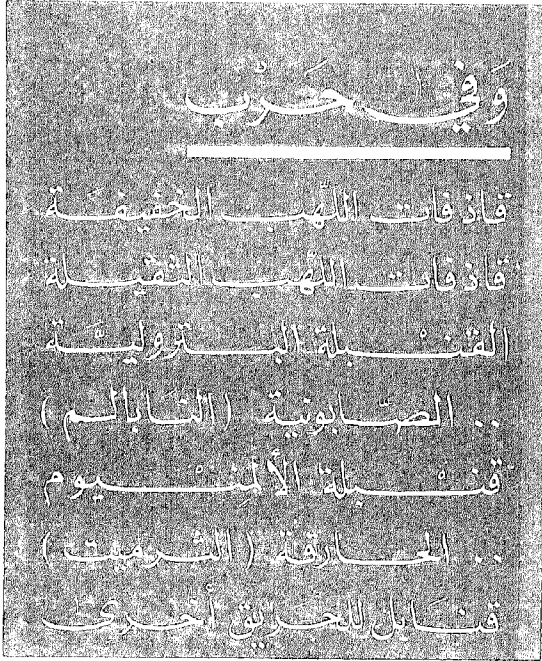 وَفي حَرْب
قاذفات اللّهب الخفيفة
قاذفات اللّهب الثقيلة
القنْبلة البتروليَّة
.. الصّابونية (النابالم)
قنْبلة الألمنْيوم
.. الحارقة (الثرميت)
قنابل للحريق أخرى